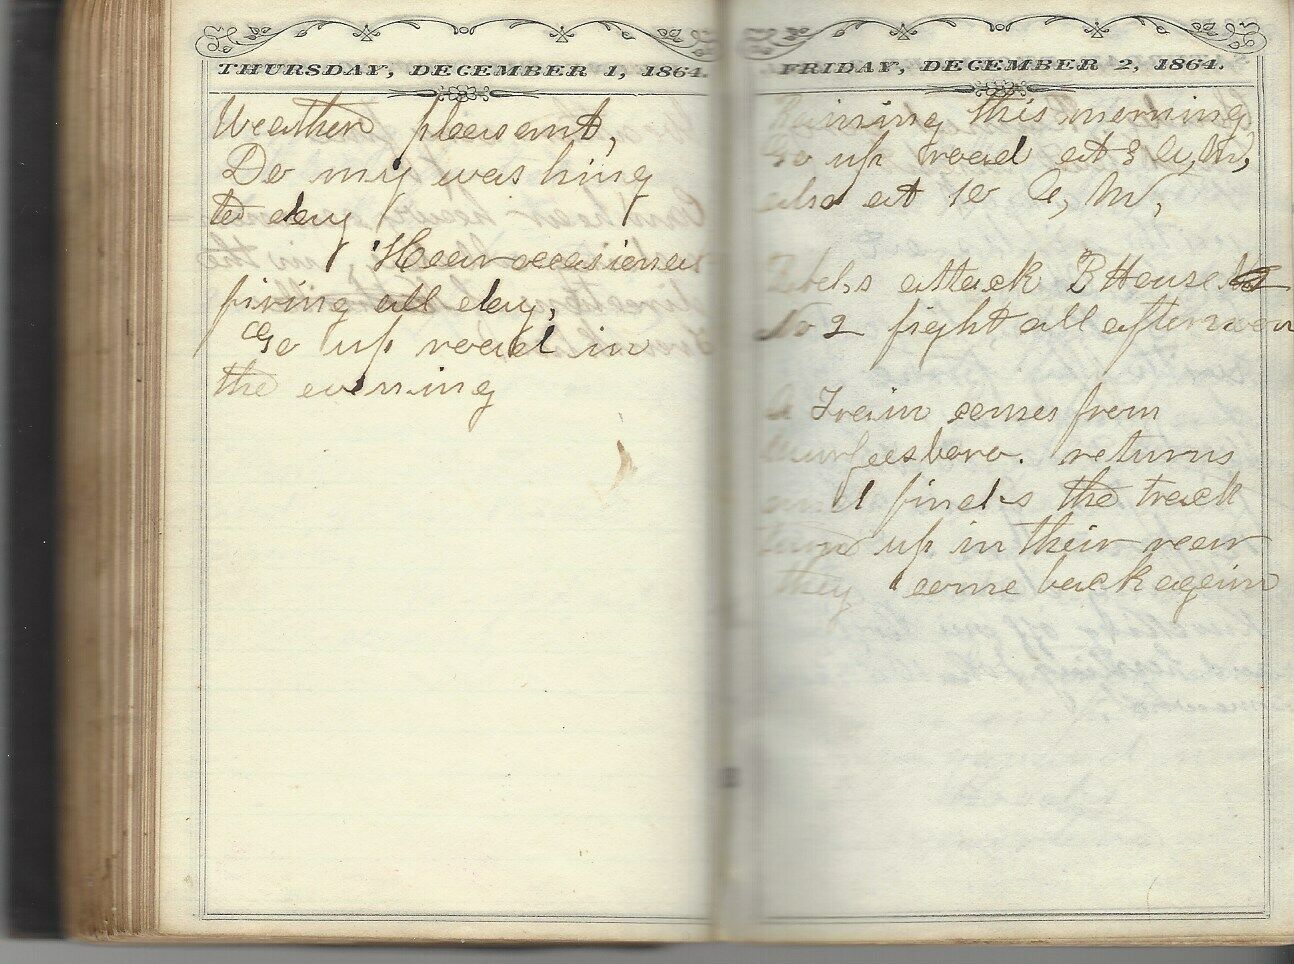 THURSDAY, DECEMBER 1, 1864.
Weather pleasant,
Do my washing
to day
Hear occasional
firing all day,
Go up road in
the evening
FRIDAY, DECEMBER 2, 1864.
Raining this morning
Go up road at 8 A, M,
also at 10 A, M,
Rebels attack B House
No 2 fight all afternoon
A Train comes from
Murfeesboro. returns
and finds the track
torn up in their rear
they come back again